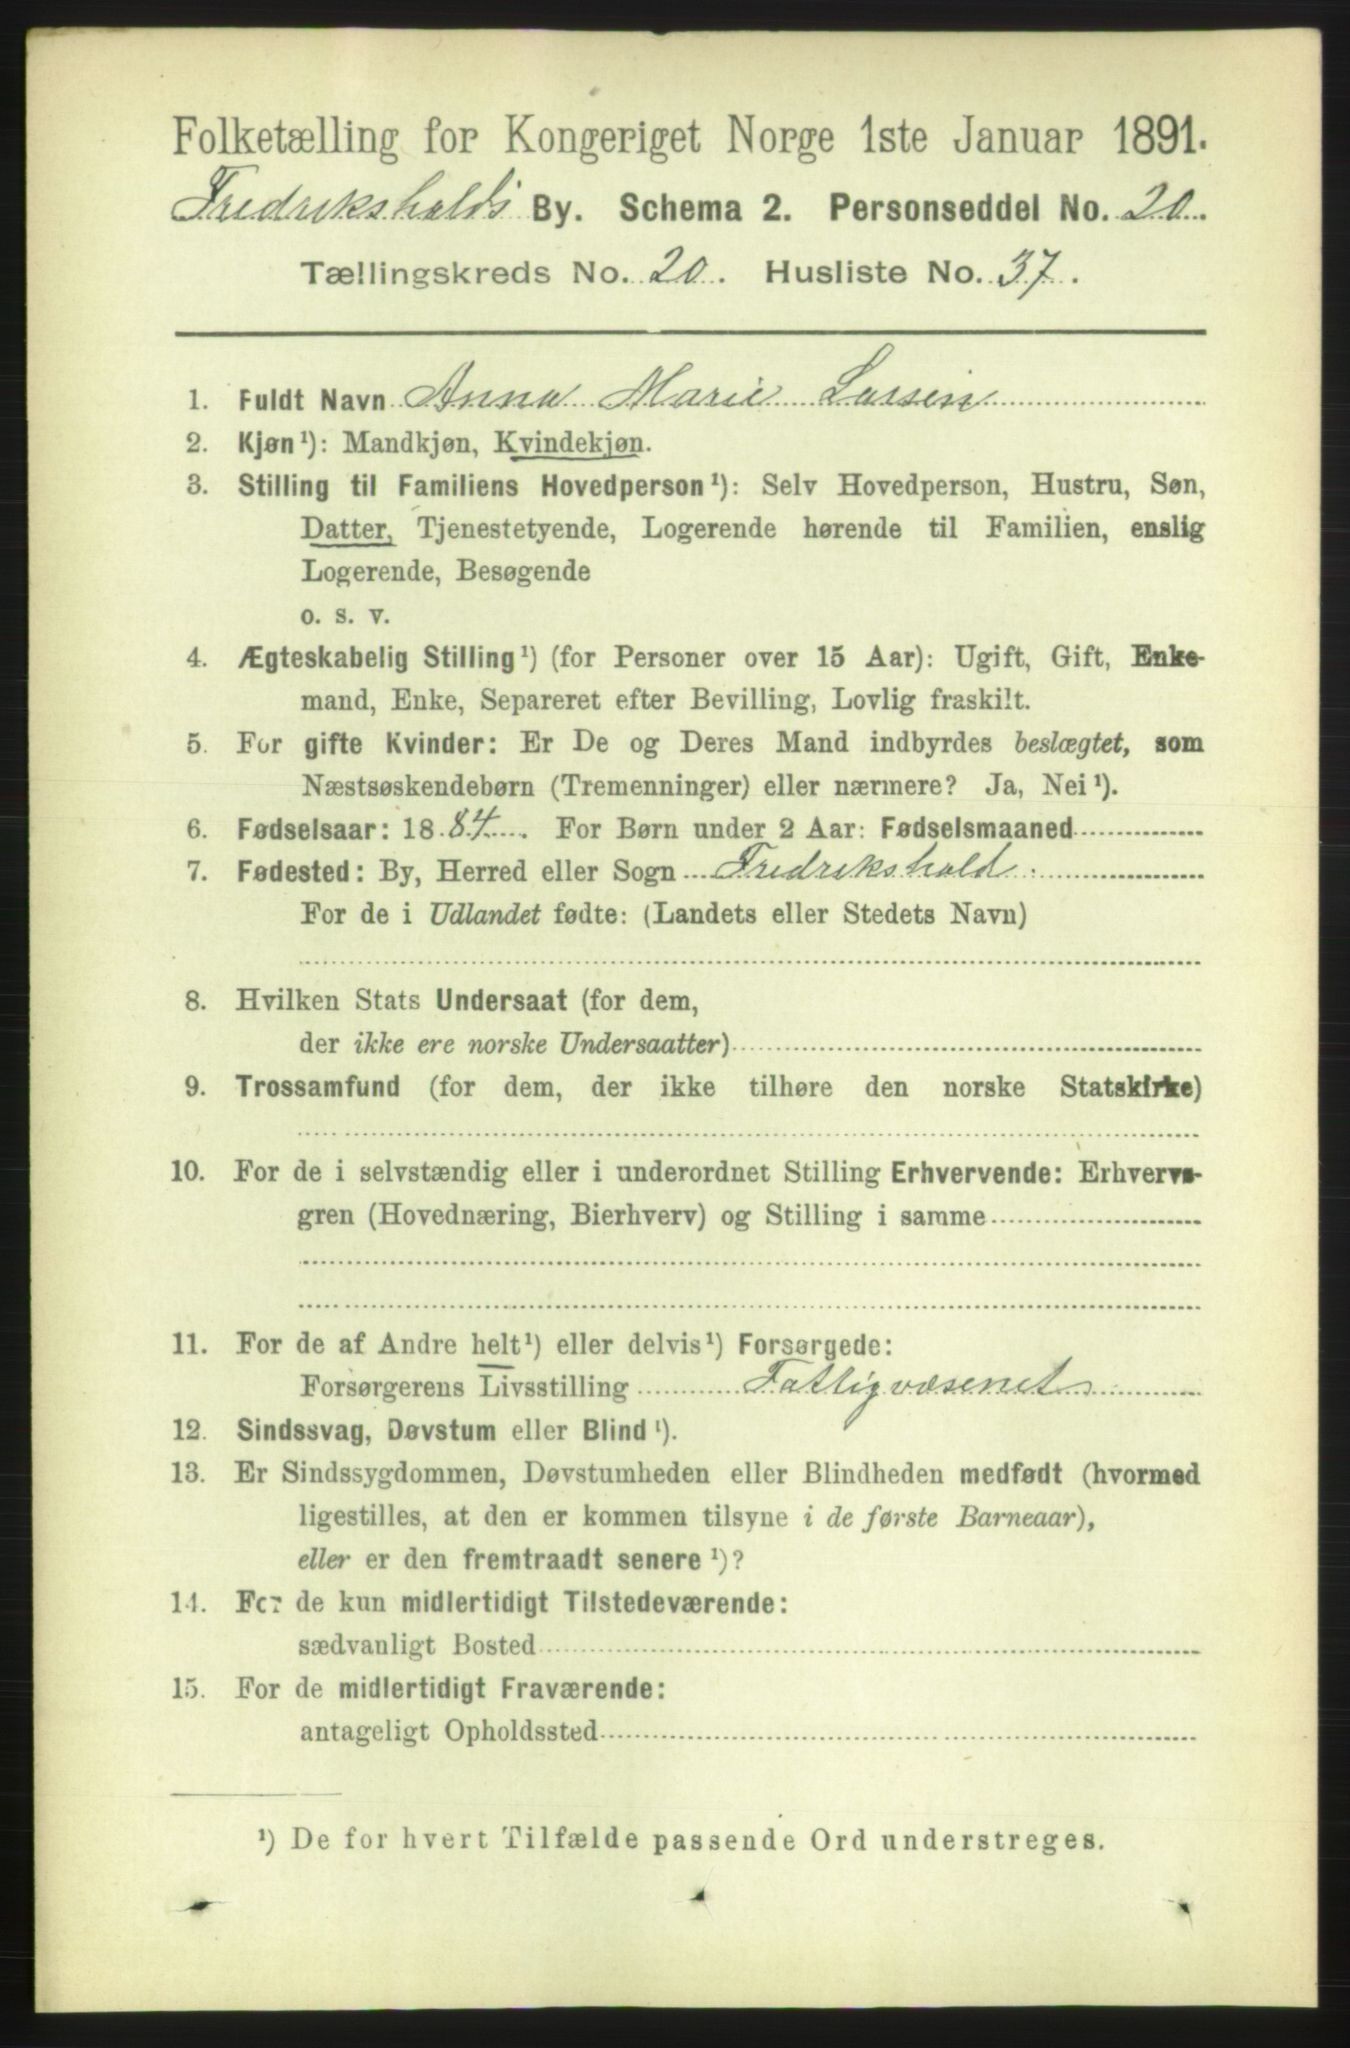 Folketælling for Kongeriget Norge 1ste Januar 1891.
Fredrikshalds By. Schema 2. Personseddel No. 20.
Tællingskreds No. 20. Husliste No. 37.
1. Fuldt Navn Anna Marie Larsen
2. Kjøn¹): Mandkjøn, Kvindekjøn.
3. Stilling til Familiens Hovedperson¹): Selv Hovedperson, Hustru, Søn,
Datter, Tjenestetyende, Logerende hørende til Familien, enslig
Logerende, Besøgende
o. s. v.
4. Ægteskabelig Stilling¹) (for Personer over 15 Aar): Ugift, Gift, Enke-
mand, Enke, Separeret efter Bevilling, Lovlig fraskilt.
5. For gifte Kvinder: Er De og Deres Mand indbyrdes beslægtet, som
Næstsøskendebørn (Tremenninger) eller nærmere? Ja, Nei¹).
6. Fødselsaar: 1884. For Børn under 2 Aar: Fødselsmaaned
7. Fødested: By, Herred eller Sogn Fredrikshald
For de i Udlandet fødte: (Landets eller Stedets Navn)
8. Hvilken Stats Undersaat (for dem,
der ikke ere norske Undersaatter)
9. Trossamfund (for dem, der ikke tilhøre den norske Statskirke)
10. For de i selvstændig eller i underordnet Stilling Erhvervende: Erhvervs-
gren (Hovednæring, Bierhverv) og Stilling i samme
11. For de af Andre helt¹) eller delvis¹) Forsørgede:
Forsørgerens Livsstilling Fattigvæsenet
12. Sindssvag, Døvstum eller Blind¹).
13. Er Sindssygdommen, Døvstumheden eller Blindheden medfødt (hvormed
ligestilles, at den er kommen tilsyne i de første Barneaar),
eller er den fremtraadt senere¹)?
14. For de kun midlertidigt Tilstedeværende:
sædvanligt Bosted
15. For de midlertidigt Fraværende:
antageligt Opholdssted
¹) De for hvert Tilfælde passende Ord understreges.